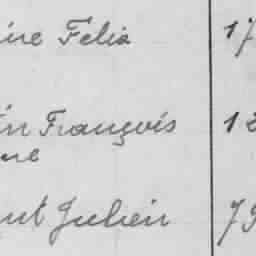 ine Felix 17
in François 18
ne
ut Julien 79